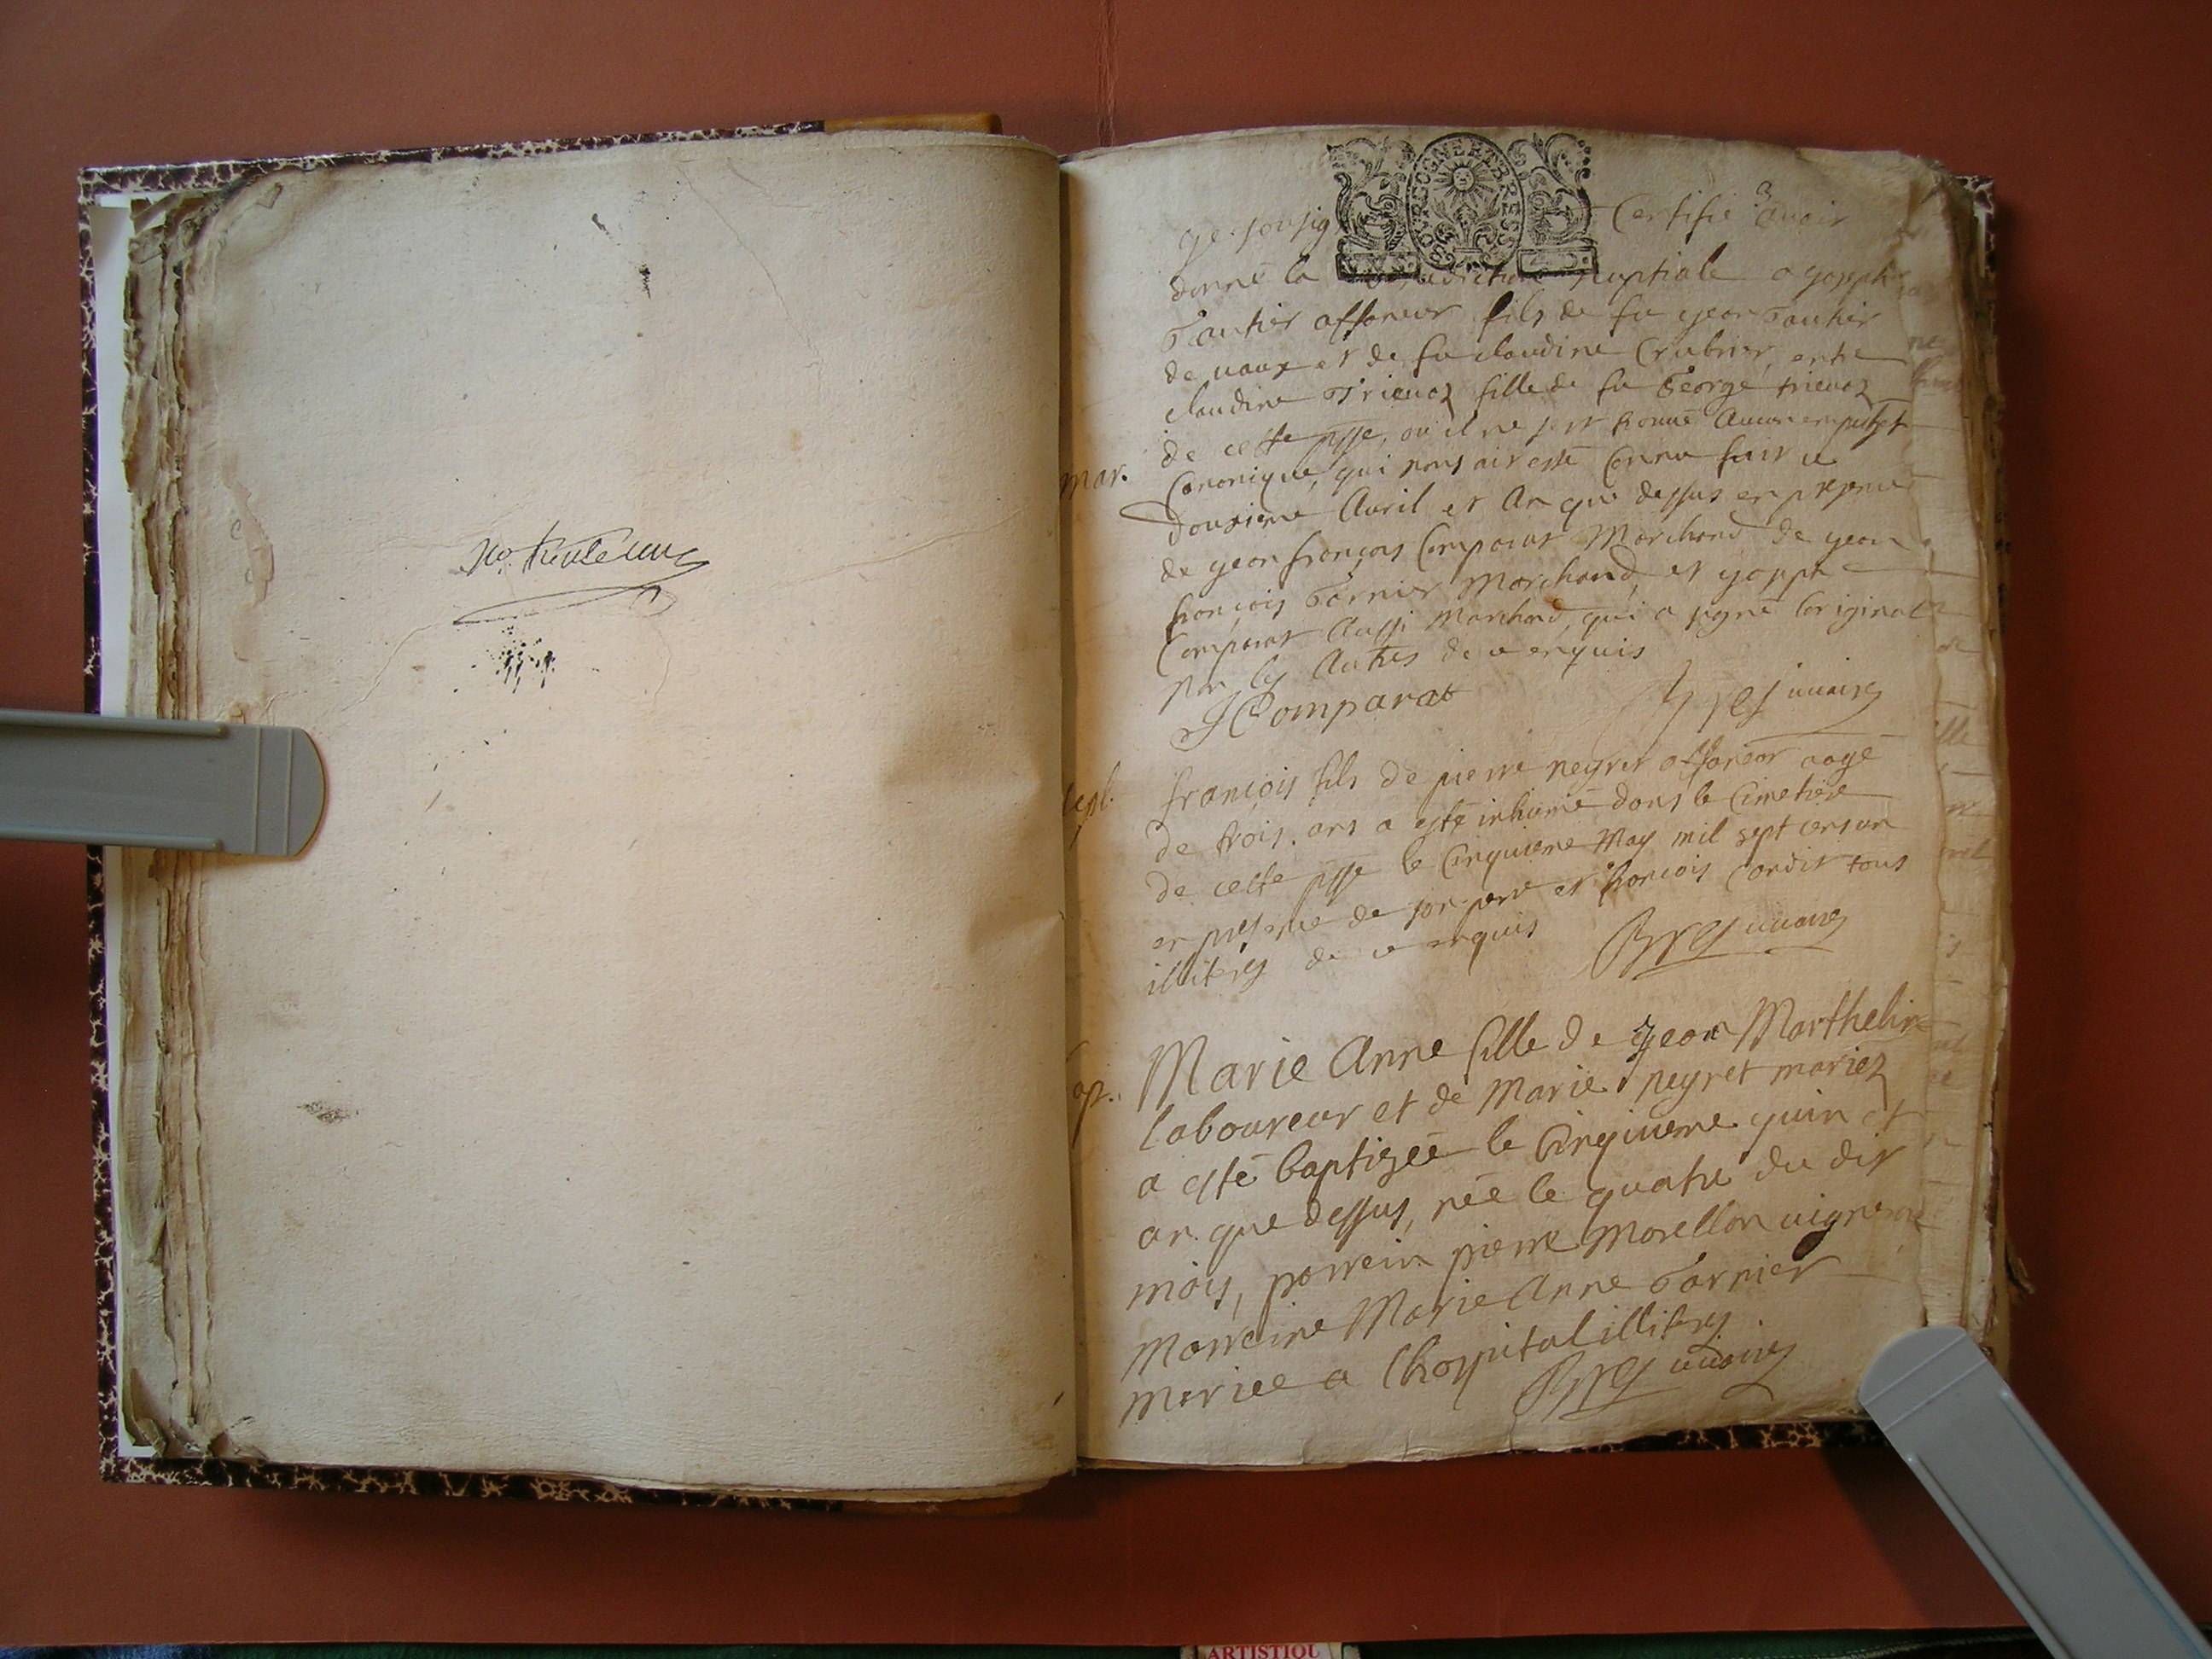 No. trente une
BOURGOGNE & BRESSE
3
je sousig Certifie avoir
donné la benediction nuptiale a joseph
Tantier affaneur fils de fu jean Tantier
de vaux et de fu claudine Crubrier, et a
claudine Trievoz fille de fu George trievoz
de cette psse, ou il ne s'est trouvé Aucun empechet
Canonique, qui nous ait esté Connu fait ce
douzieme Avril et An que dessus en presence
de jean françois Comparat Marchand de jean
françois Garnier Marchand, et joseph
Comparat Aussi Marchand, qui a signé l'original
non les Autres de ce enquis
mar.
J Comparat
françois fils de pierre neyret affaneur aagé
de trois ans a esté inhumé dans le Cimetiere
de cette psse le Cinquieme May mil sept cens un
en presence de son pere et françois Cordit tous
illiterés de ce enquis
sepl.
Marie Anne fille de Jean Marthelin
laboureur et de Marie neyret mariez
a esté baptizée le Cinquieme juin et
an que dessus, née le quatre du dit
mois, parrein pierre Morellon vigneron
Marreine Marie Anne Garnier
Mariee a l'hospital illiterés
ap.
ARTISTIQU